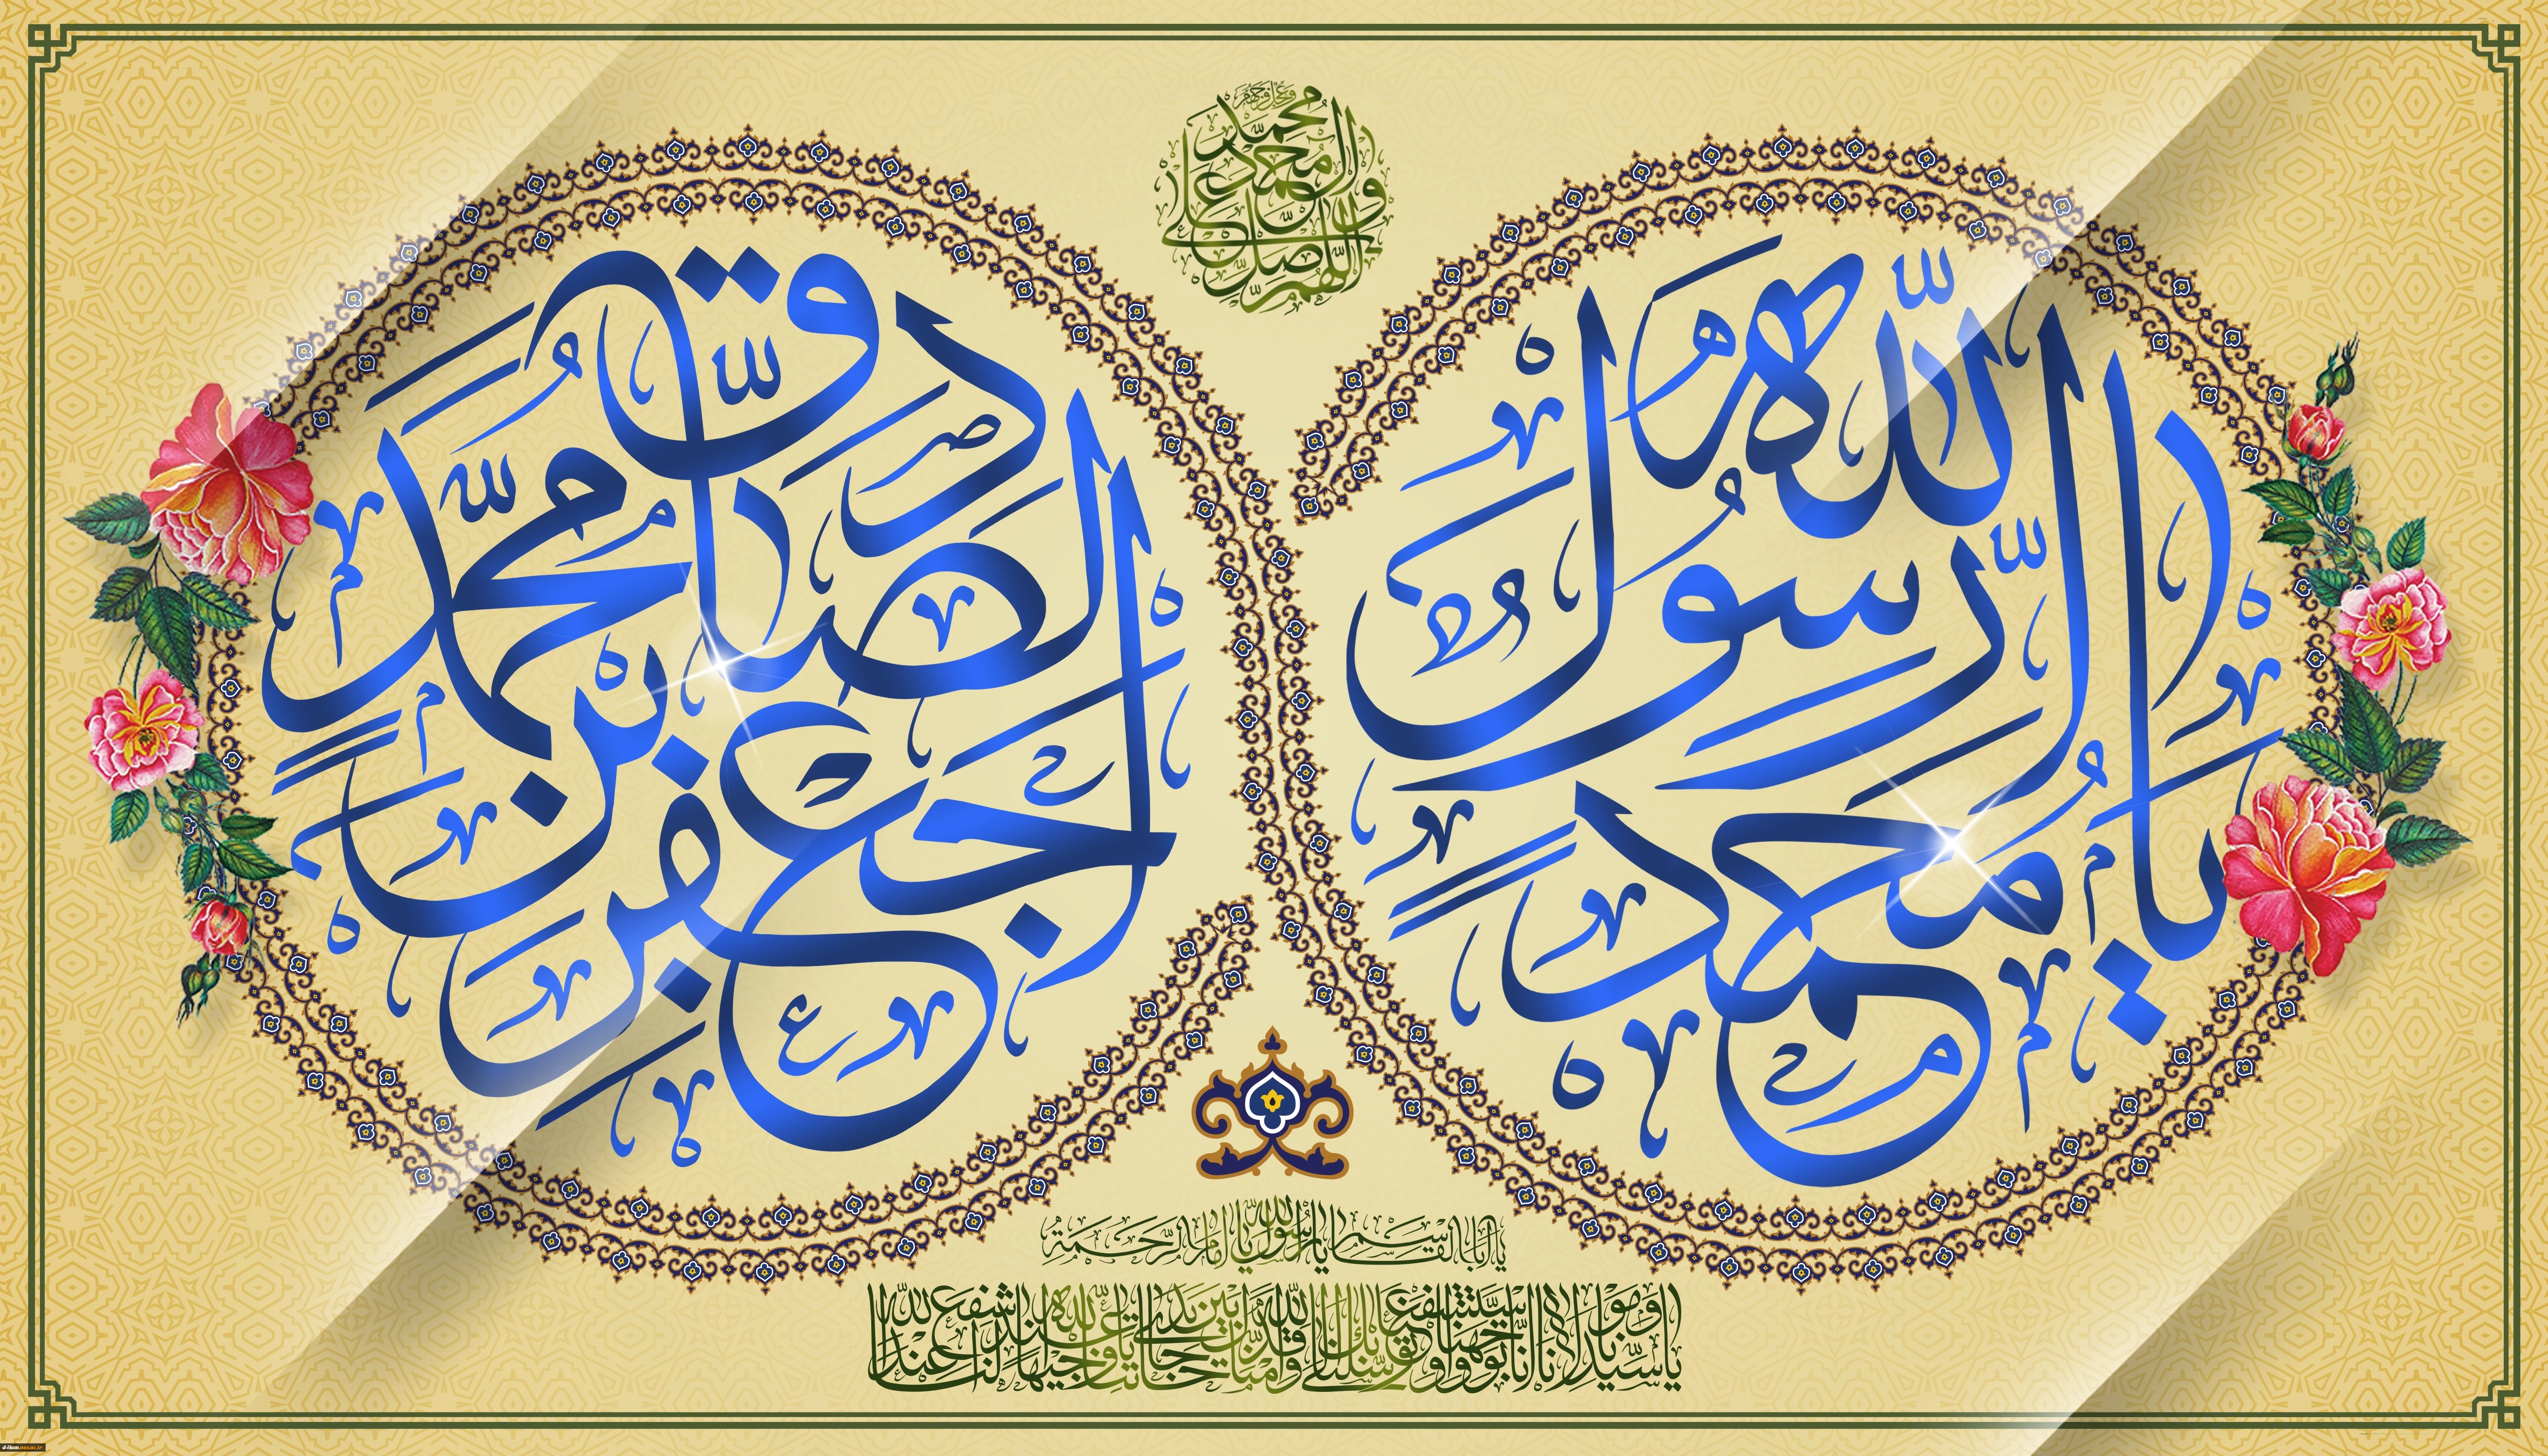 اللهم صل علی محمد وآل محمد وعجل فرجهم
یا محمد الرسول الله
جعفر بن محمد الصادق
یا ابا القاسم یا رسول الله یا امام الرحمة
یا سیدنا ومولانا انا توجهنا واستشفعنا وتوسلنا بك الی الله وقدمناك بین یدی حاجاتنا یا وجیها عند الله اشفع لنا عند الله